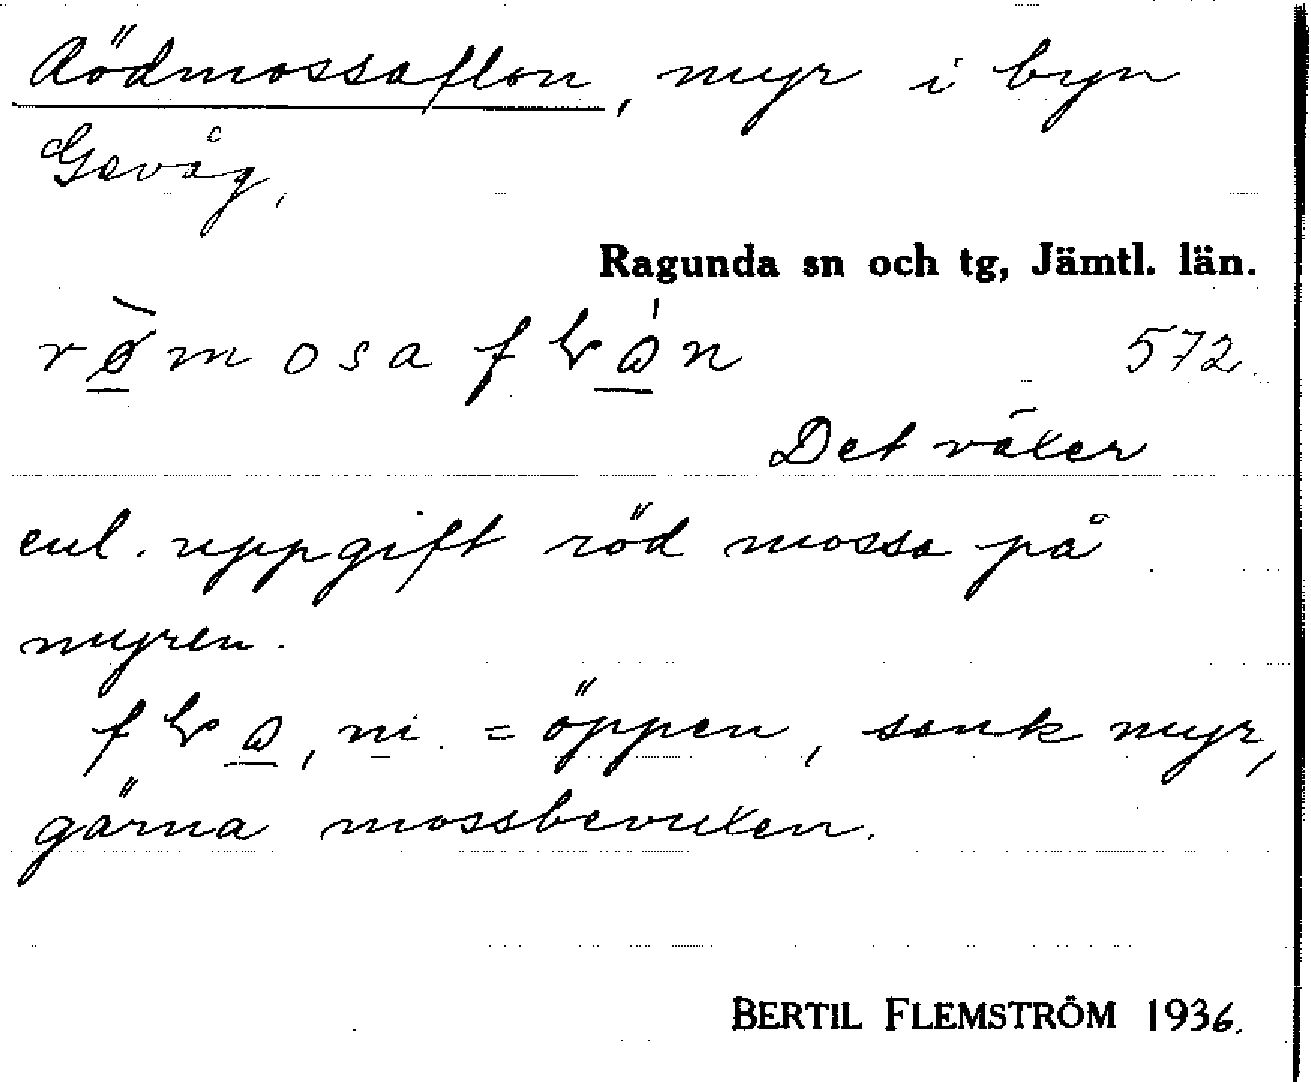 Rödmossaflon, myr i byn
Gevåg,
Ragunda sn och tg, Jämtl. län.
572.
Det växer
enl. uppgift röd mossa på
myren.
= öppen, sank myr,
gärna mossbevuxen.
BERTIL FLEMSTRÖM 1936.